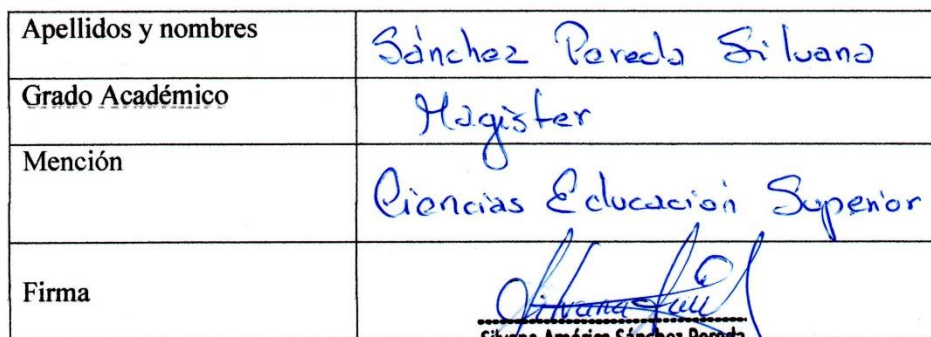 Apellidos y nombres
Sánchez Pereda Silvana
Grado Académico
Magister
Mención
Ciencias Educación Superior
Firma
Silvana
Silvana América Sánchez Pereda